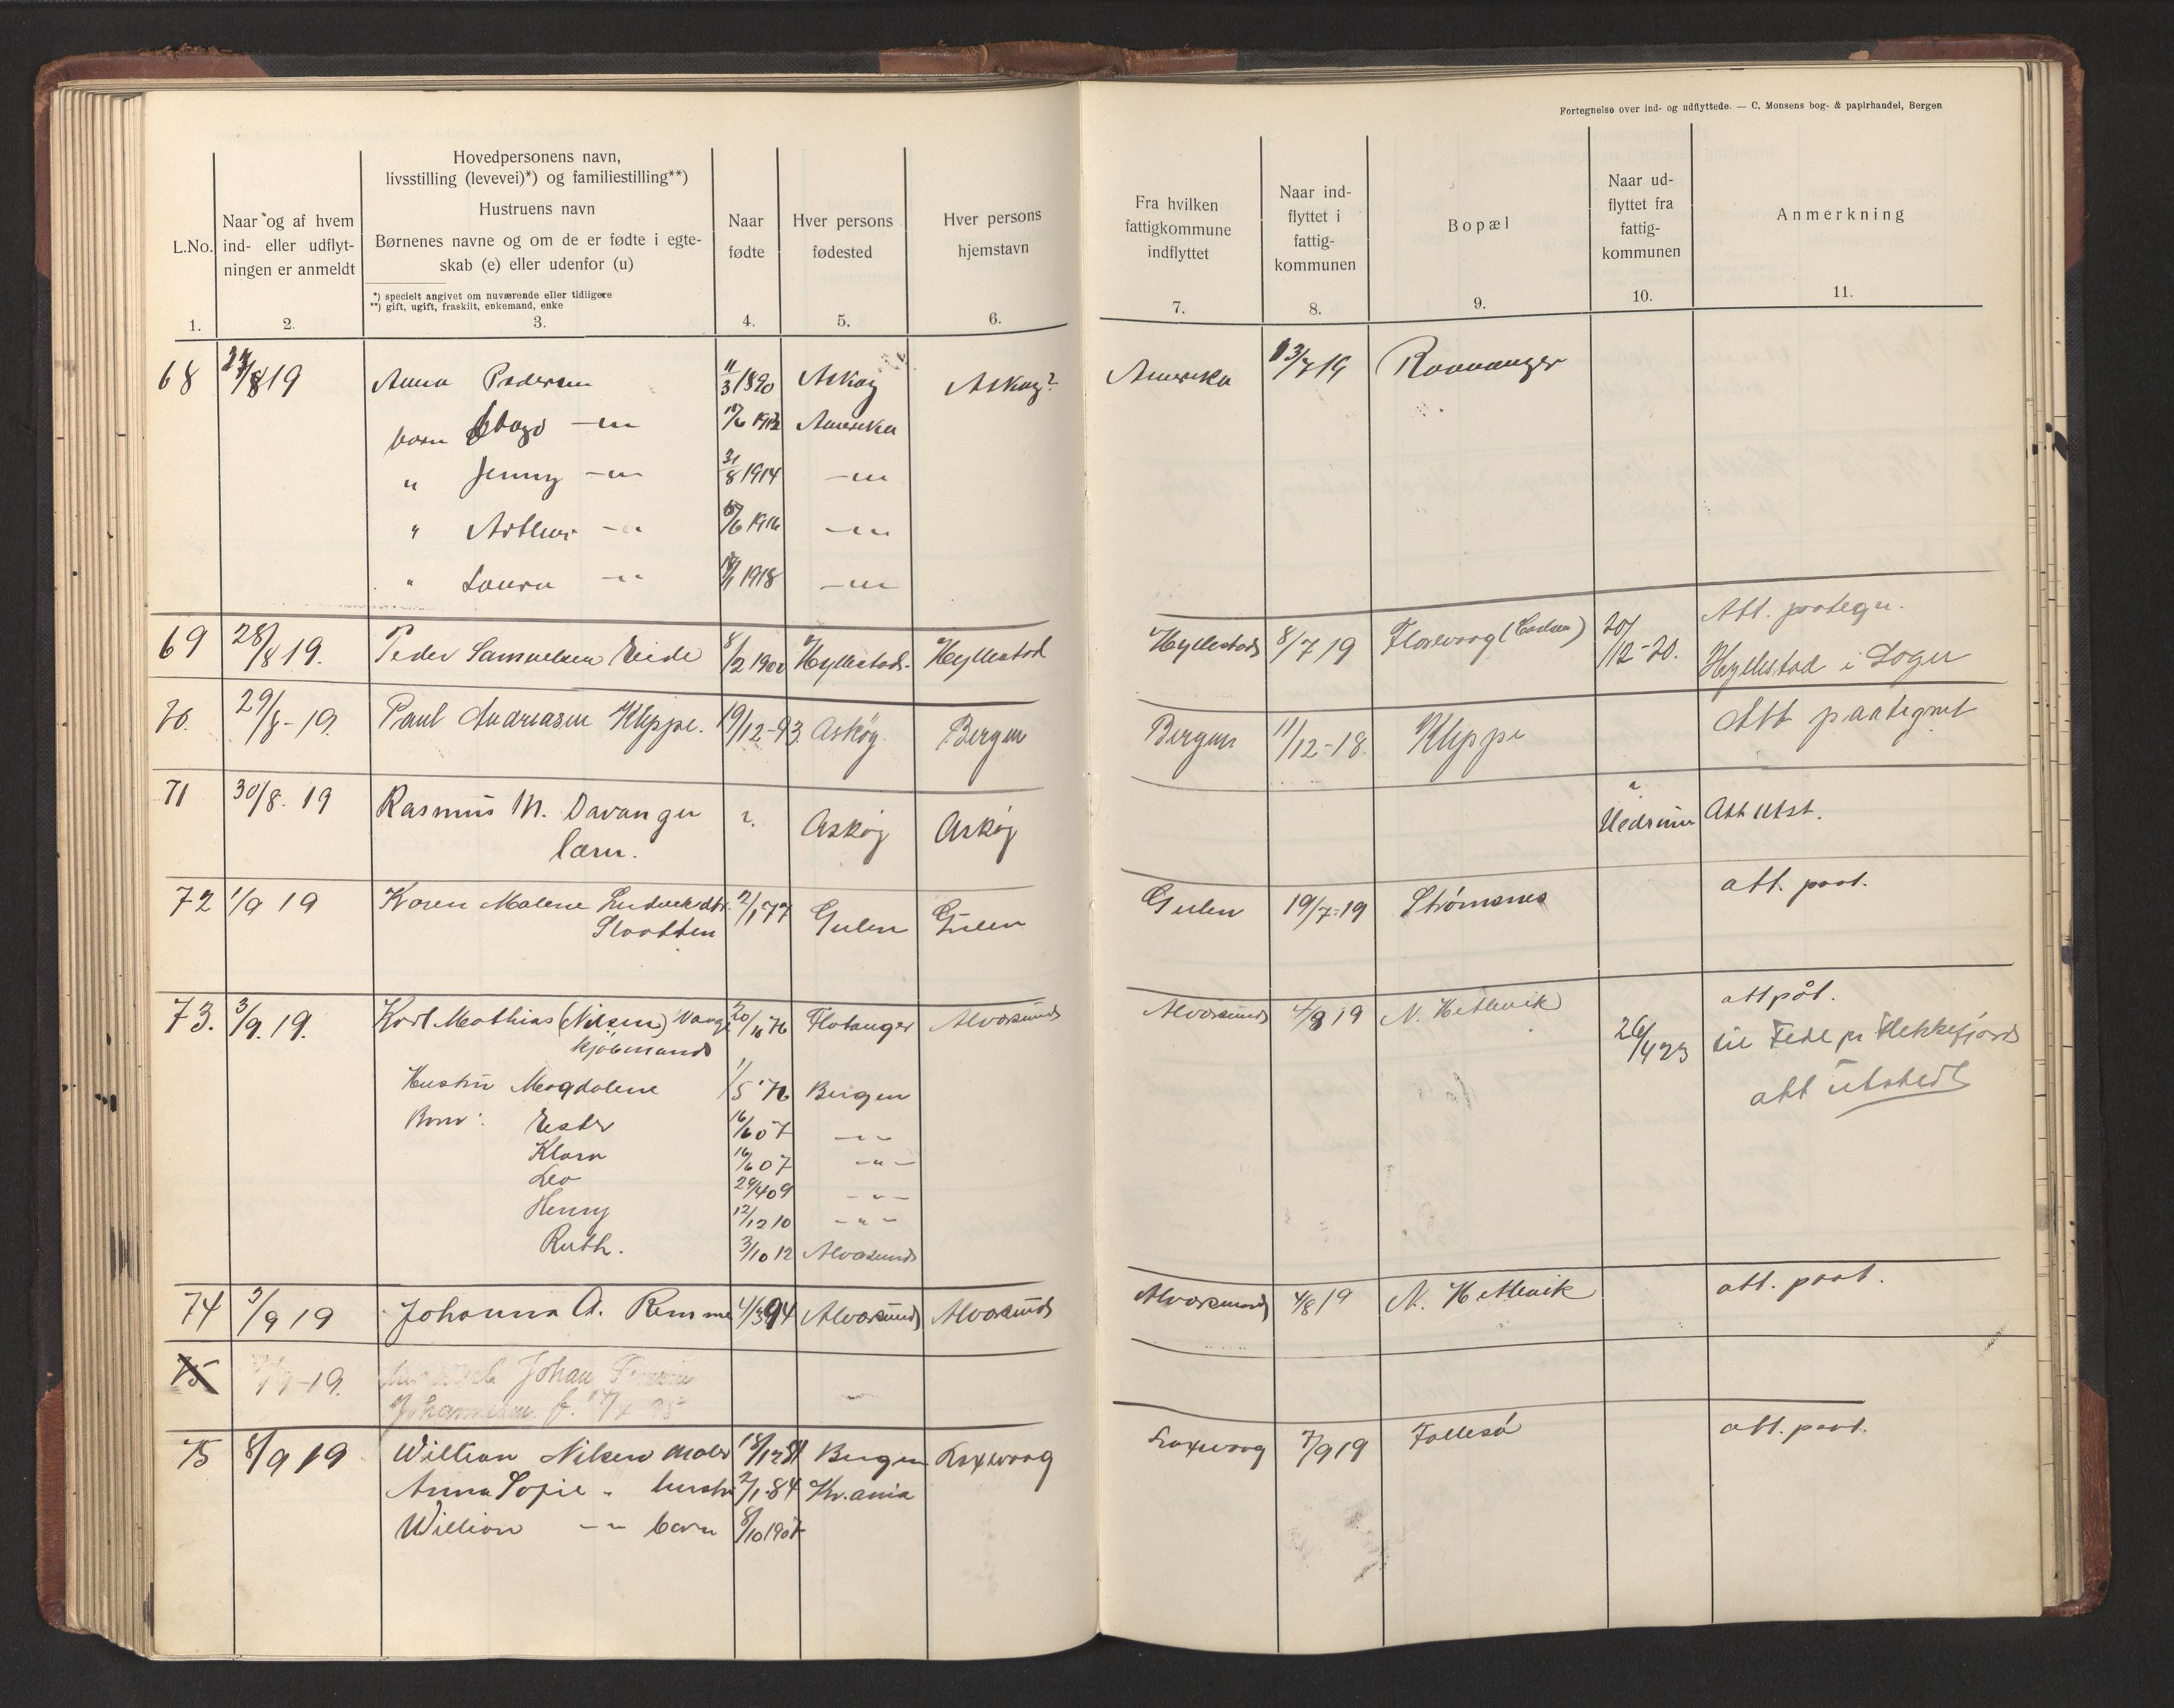 Fortegnelse over ind- og udflyttede. — C. Monsens bog- & papirhandel, Bergen
L.No.
1.
Naar og af hvem
ind- eller udflyt-
ningen er anmeldt
2.
Hovedpersonens navn,
livsstilling (levevei)*) og familiestilling**)
Hustruens navn
Børnenes navne og om de er fødte i egte-
skab (e) eller udenfor (u)
*) specielt angivet om nuværende eller tidligere
**) gift, ugift, fraskilt, enkemand, enke
3.
Naar
fødte
4.
Hver persons
fødested
5.
Hver persons
hjemstavn
6.
Fra hvilken
fattigkommune
indflyttet
7.
Naar ind-
flyttet i
fattig-
kommunen
8.
Bopæl
9.
Naar ud-
flyttet fra
fattig-
kommunen
10.
Anmerkning
11.
68 27/8 19 Anna Pedersen 11/3 1890 Askøy Askøy? Amerika 13/7 19 Ravnanger
barn —"— 1912 Amerika
" Jenny —"— 31/8 1914 —"—
" Arthur —"— 1916 —"—
" Laura —"— 1918 —"—
69 28/8 19. Peder Samuelsen Eide 8/2 1900 Hyllestad. Hyllestad Hyllestad 8/7 19 Florvaag 20/12-20. Att. paategn.
Hyllestad i Sogn
70. 29/8-19. Paul Andreasen Kleppe. 19/12-93 Askøy Bergen Bergen 11/12-18. Kleppe Att paategnet
71 30/8. 19 Rasmus M. Davanger ? Askøy Askøy Att utst.
lærer.
72 1/9 19 Karen Malene 2/1 77 Gulen Gulen Gulen 19/7-19 Strømsnes att. paat.
Slaatten
73. 3/9. 19. Karl Mathias (Nilsen) 20/10 76 Flatanger Alversund Alversund 4/8 19 N. Hetlevik att påt.
kjøbmand
26/4 23 til Fede pr Flekkefjord
att utstedt
Hustru Magdalene 1/5 76 Bergen
Barn: Ester 16/6 07 —"—
Klara 16/6 07 —"—
Leo 29/4 09 —"—
Henny 12/12 10 —"—
Ruth. 3/10 12 Alversund
74 3/9 19 Johanna A. Remme 4/3 94 Alversund Alversund Alversund 4/8 19 N. Hetlevik att. paat.
75 /9-19. Johan
Johannesen. f.
75 8/9 19 William Nilsen maler 18/12 Bergen Laxevaag Laxevaag 7/9 19 Follesø att. paat.
Anna Sofie " hustru 2/1-84 Kr.ania
William —"— barn 8/10 1907